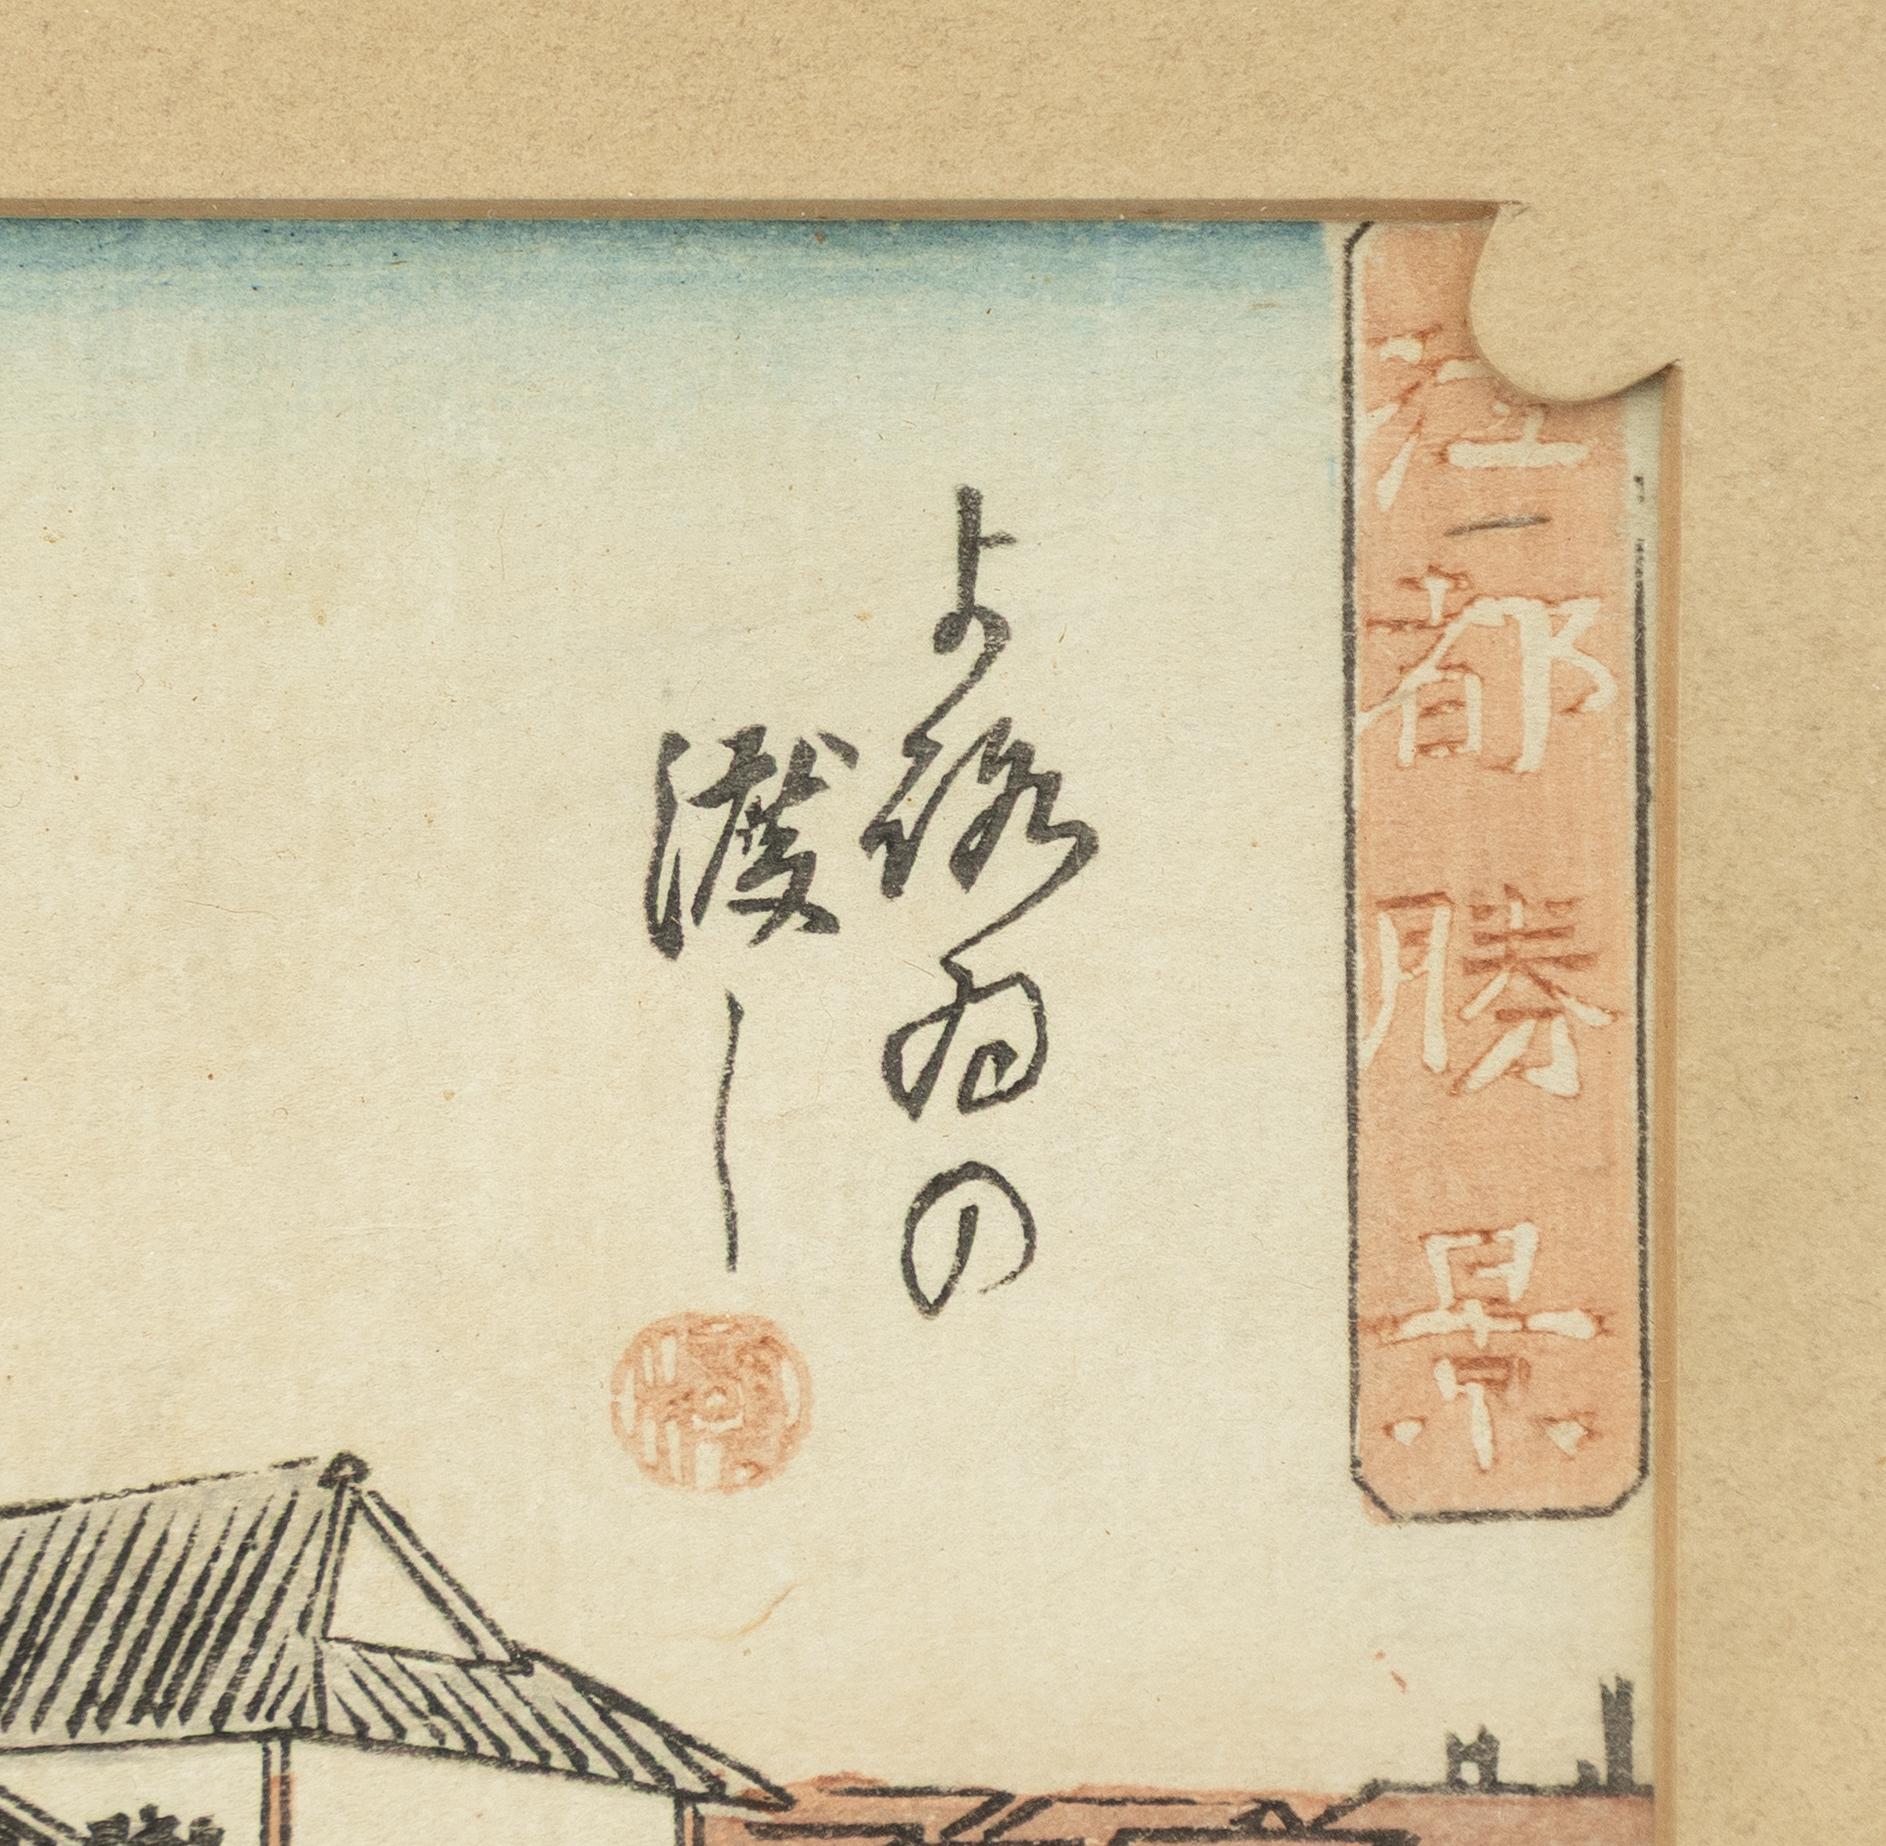 江都勝景
よろゐの
渡し